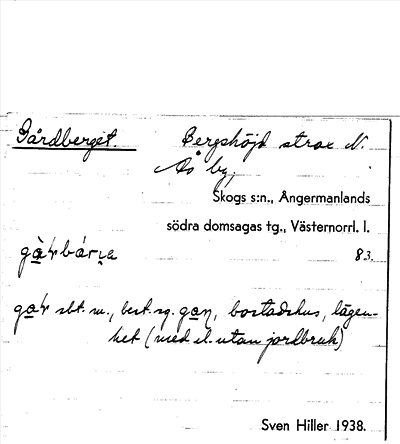 Gårdberget. Bergshöjd strax N.
Ås by,
Skogs s:n., Ångermanlands
södra domsagas tg., Västernorrl. l.
83.
sbt. m., best. sg. bostadshus, lägen-
het (med el. utan jordbruk)
Sven Hiller 1938.